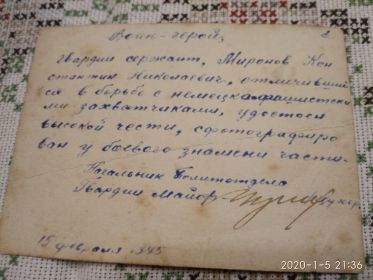 Воин-герой,
гвардии сержант, Миронов Кон
стантин Николаевич, отличивший
ся в борьбе с немецко-фашистски
ми захватчиками, удостоен
высокой чести, сфотографиро
ван у боевого знамени части.
Начальник Политотдела
Гвардии Майор
15 февраля 1945
2020-1-5 21:36